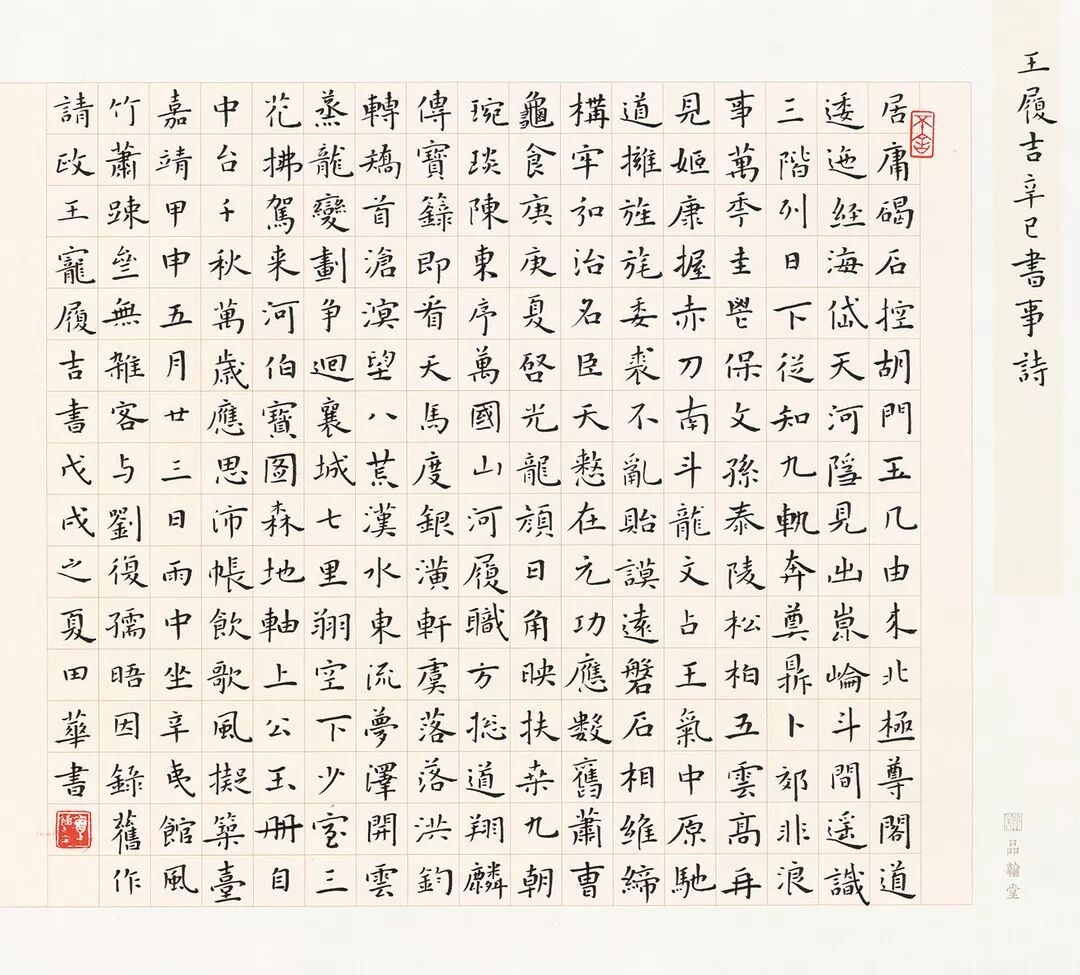 王履吉辛巳書事詩
不舍
居庸碣石控胡門玉几由来北極尊閣道
逶迤經海岱天河隱見出崑崙斗間遥識
三階列日下從知九軌奔奠鼎卜郊非浪
事萬季圭鬯保文孫泰陵松柏五雲高再
見姬康握赤刀南斗龍文占王氣中原馳
道擁旌旄委裘不亂貽謨遠磐石相維締
構牢弘治名臣天憖在元功應數舊蕭曹
龜食庚庚夏啓光龍顔日角映扶桒九朝
琬琰陳東序萬國山河履職方捴道翔麟
傳寶籙即看天馬度銀潢軒虞落落洪鈞
轉矯首滄溟望八荒漢水東流夢澤開雲
蒸龍變劃争迴襄城七里翔空下少室三
花拂駕来河伯寶圖森地軸上公玉冊自
中台千秋萬歲應思沛帳飲歌風擬築臺
嘉靖甲申五月廿三日雨中坐辛夷館風
竹蕭踈無雜客与劉復孺晤因錄舊作
請政王寵履吉書戊戌之夏田華書
品翰堂